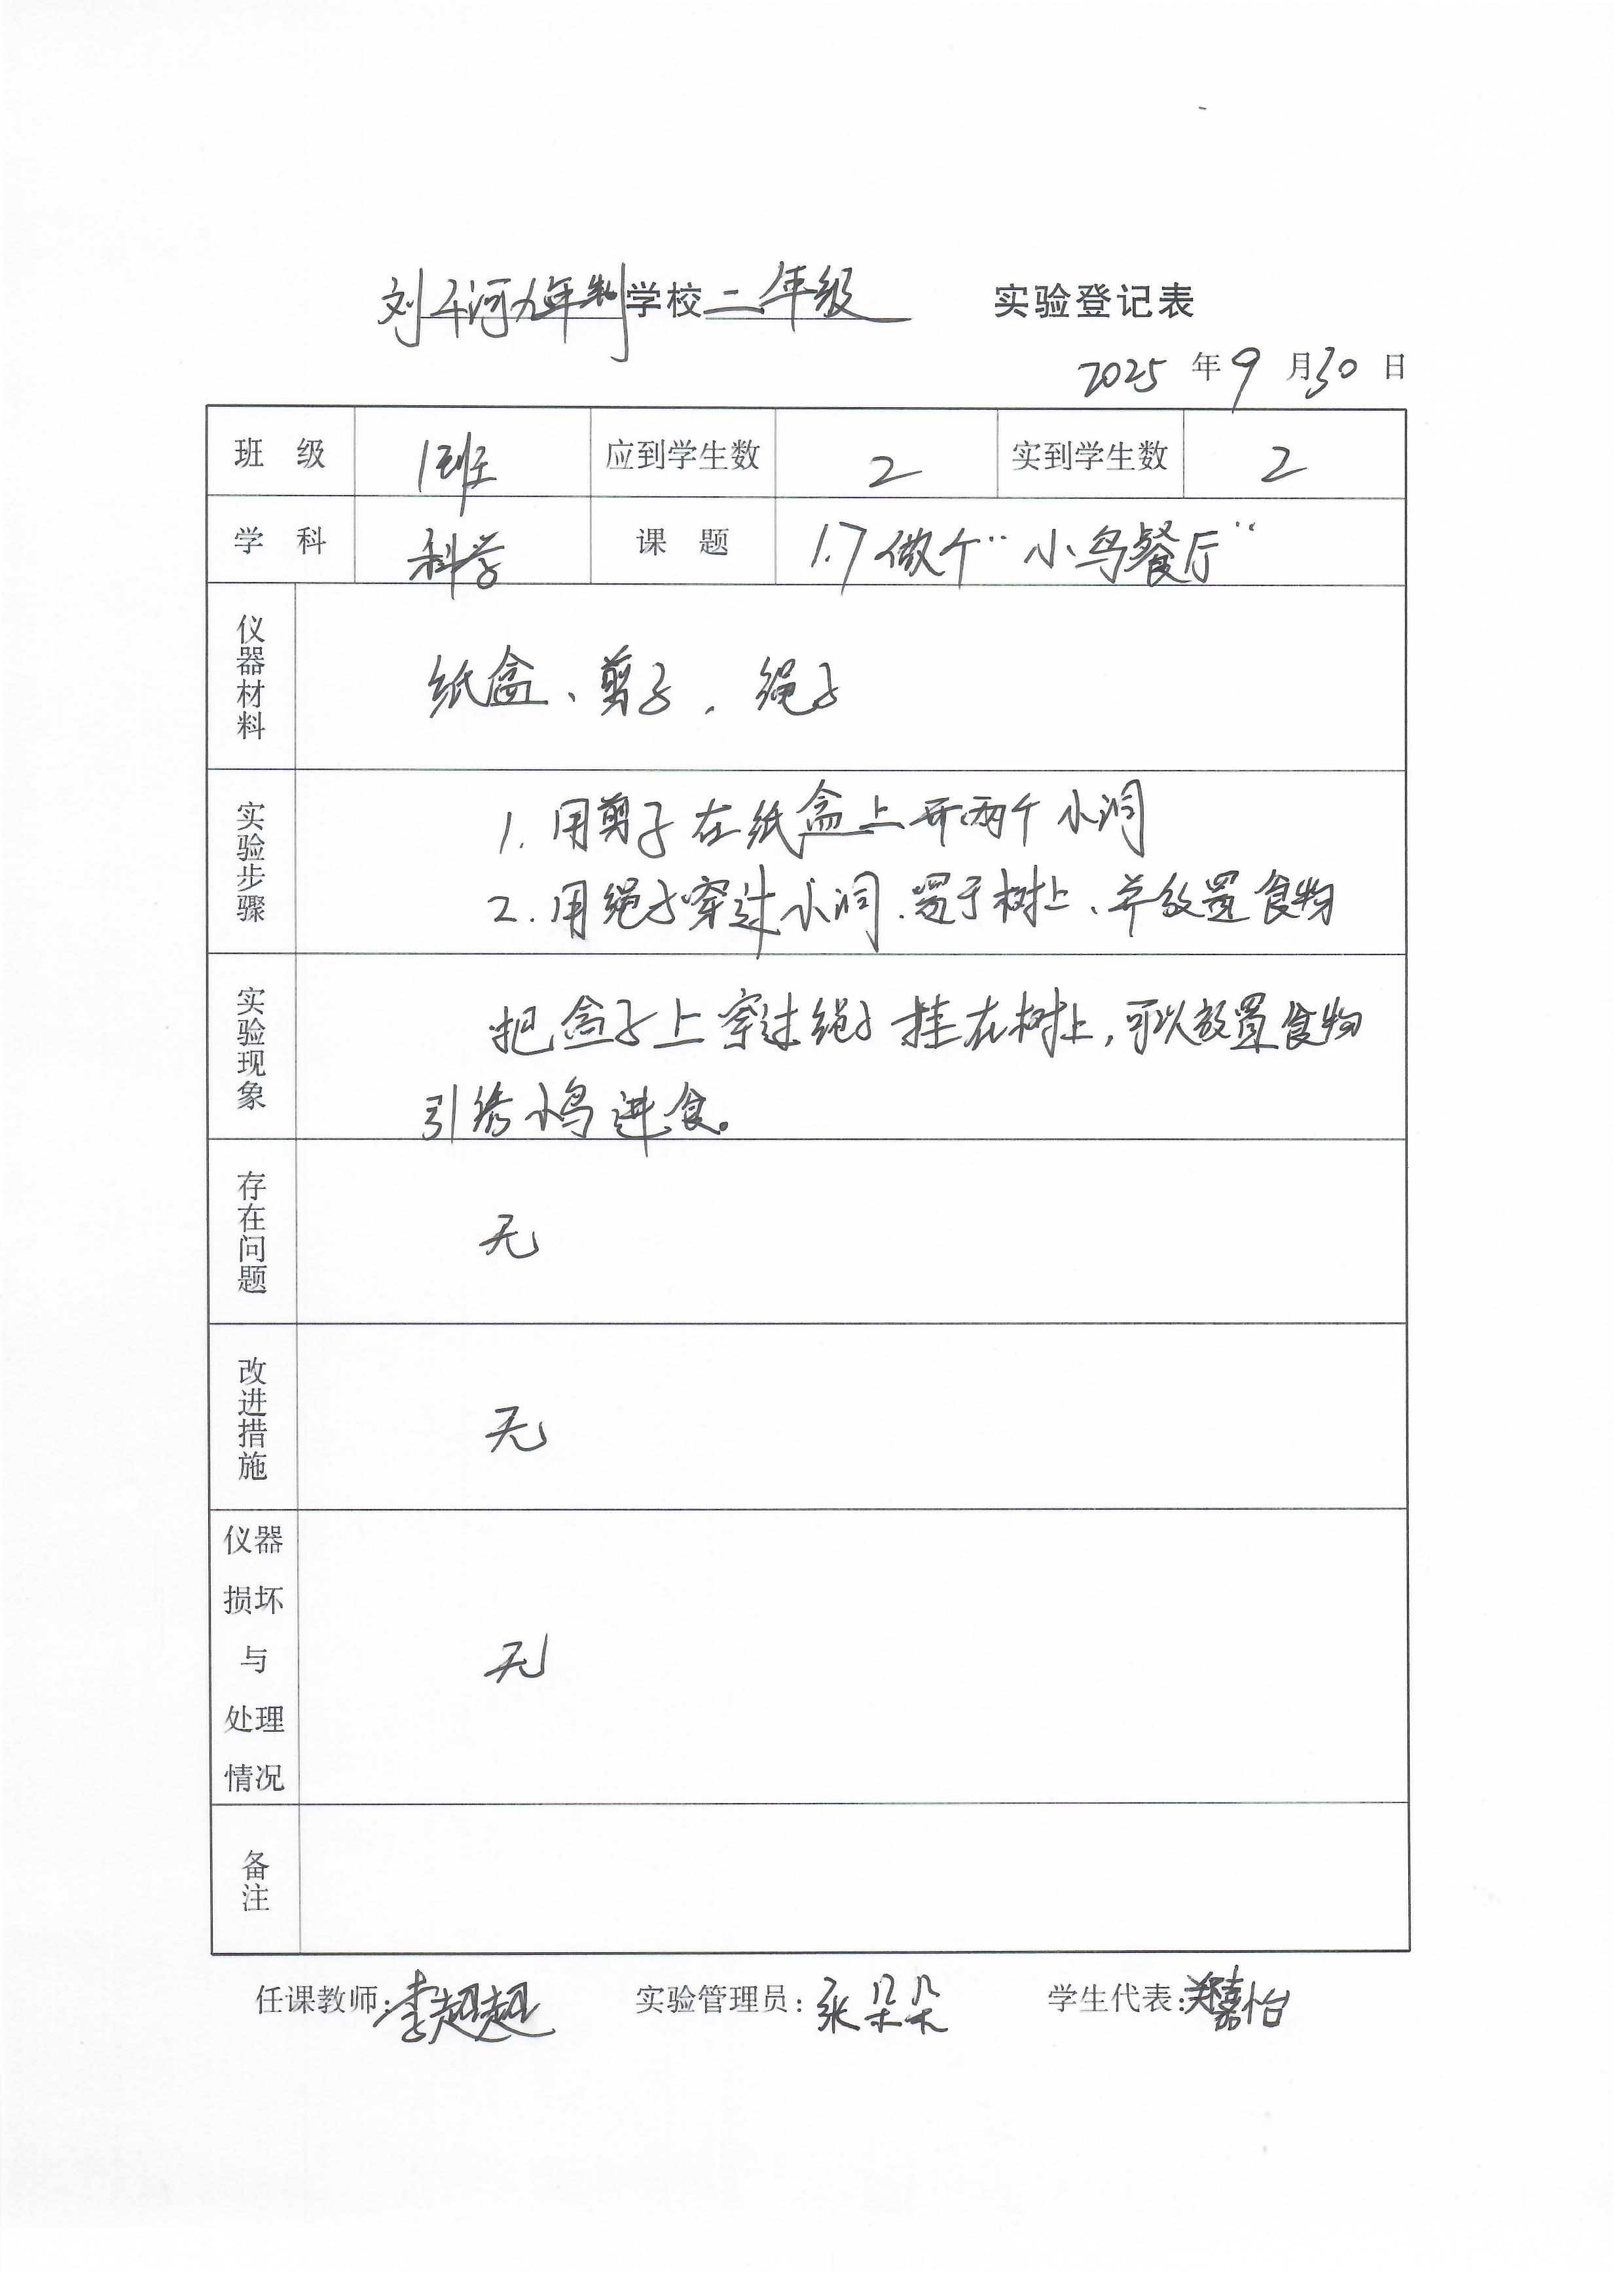 刘千河九年制学校二年级 实验登记表
2025 年 9 月 30 日
班 级 1班 应到学生数 2 实到学生数 2
学 科 科学 课 题 1.7 做个“小鸟餐厅”
仪器材料 纸盒、剪子、绳子
实验步骤
1. 用剪子在纸盒上开两个小洞
2. 用绳子穿过小洞、置于树上、并放置食物
实验现象
把盒子上穿过绳子挂在树上,可以放置食物
引诱小鸟进食。
存在问题 无
改进措施 无
仪器
损坏
与
处理
情况
无
备注
任课教师:李超超 实验管理员:张朵朵 学生代表:郑嘉怡